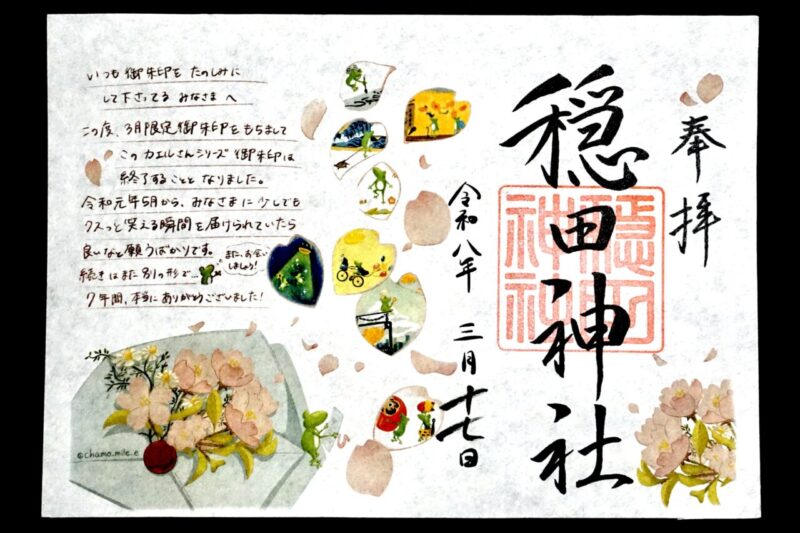 奉拝
穏田神社
穏田神社
令和八年 三月十七日
いつも御朱印を たのしみに
して下さってる みなさまへ
この度、3月限定御朱印をもちまして
このカエルさんシリーズ御朱印は
終了することと なりました。
令和元年5月から、みなさまに少しでも
クスっと笑える瞬間を届けられていたら
良いなと願うばかりです。
続きはまた別の形で…
また、お会い
しましょう!
7年間、本当にありがとうございました!
@chamo.mile.e